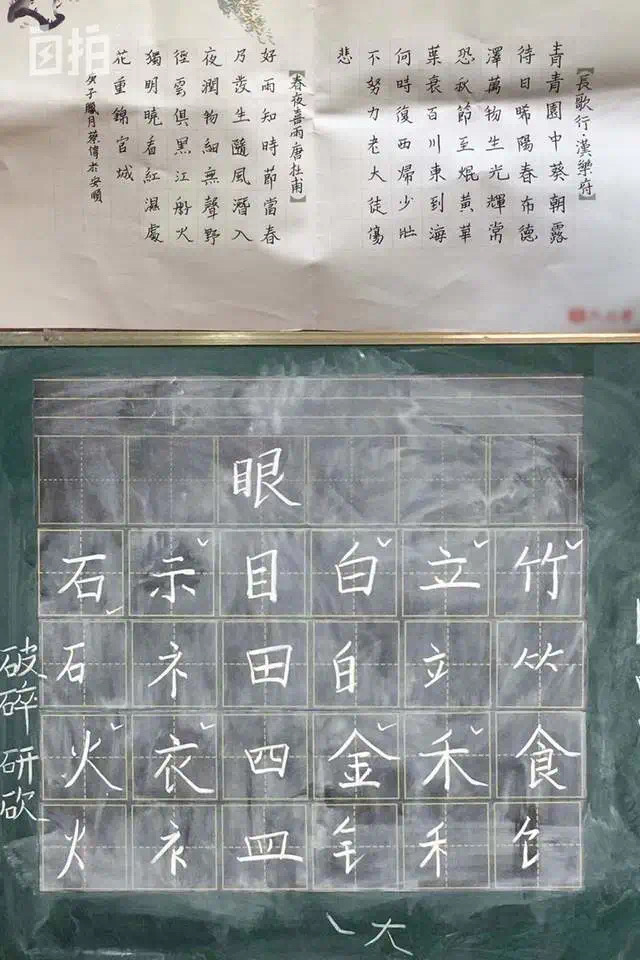 自拍
【長歌行·漢樂府】
青青園中葵朝露
待日晞陽春布德
澤萬物生光輝常
恐秋節至焜黃華
葉衰百川東到海
何時復西歸少壯
不努力老大徒傷
悲
【春夜喜雨唐杜甫】
好雨知時節當春
乃發生隨風潛入
夜潤物細無聲野
徑雲俱黑江船火
獨明曉看紅濕處
花重錦官城
庚子臘月蔡偉於安順
眼
石 示 目 白 立 竹
石 礻 田 白 立 ⺮
火 衣 四 金 禾 食
火 衤 皿 钅 禾 饣
破碎
研砍
㇏ 大